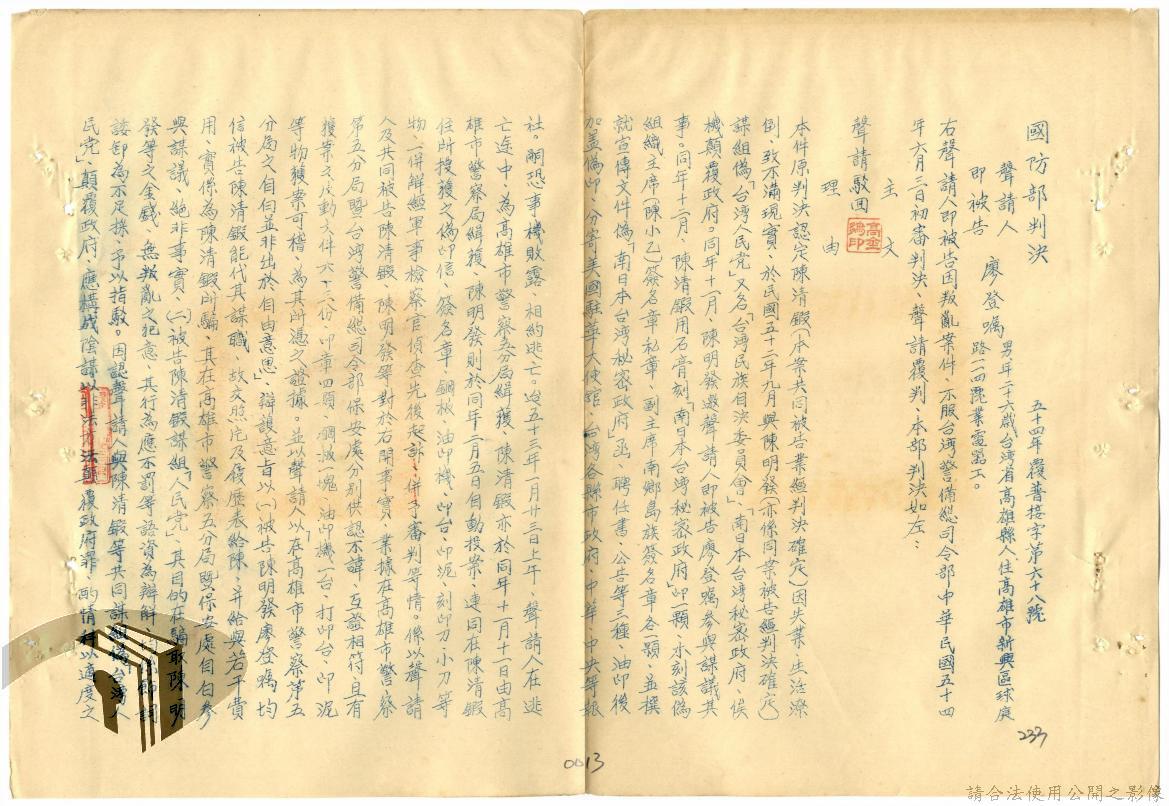 國防部判決
五十四年覆普接字第六十八號
聲請人
即被告 廖登囑 男、年二十六歲台灣省高雄縣人、住高雄市新興區球庭
路一四號業電器工。
右聲請人即被告因叛亂案件、不服台灣警備總司令部中華民國五十四
年六月三日初審判決、聲請覆判、本部判決如左：
主文
聲請駁回
理由
本件原判決認定陳清鍛（本案共同被告業經判決確定）因失業、生活潦
倒、致不滿現實、於民國五十二年九月與陳明發（亦係同案被告經判決確定）
謀組偽「台湾人民党」又名「台湾民族自决委員会」、「南日本台湾秘密政府」、俟
機顛覆政府。同年十一月、陳明發邀聲請人即被告廖登囑參與謀議其
事。同年十二月、陳清鍛用石膏刻「南日本台湾秘密政府」印一顆、木刻該偽
組織主席（陳小乙）簽名章私章、副主席南鄉島族簽名章各一顆、並撰
就宣傳文件偽「南日本台湾秘密政府」函、聘任書、公告等三種、油印後
加盖偽印、分寄美國駐華大使館、台湾各縣市政府、中華、中央等報
社。嗣恐事機敗露、相約逃亡。迨五十三年一月廿三日上午、聲請人在逃
亡途中、為高雄市警察五分局緝獲、陳清鍛亦於同年十一月十一日由高
雄市警察局緝獲、陳明發則於同年二月五日自動投案、連同在陳清鍛
住所搜獲之偽印信、簽名章、鋼板、油印機、印台、印泥、刻印刀、小刀等
物一併解經軍事檢察官偵查光後起訴、併予審判等情。係以聲請
人及共同被告陳清鍛、陳明發等對於右開事實、業據在高雄市警察
第五分局暨台湾警備總司令部保安處分別供認不諱、互證相符且有
獲案之反動文件六十三份、印章四顆、鋼板一塊、油印機一台、打印台、印泥
等物獲案可稽、為其所憑之證據、並以聲請人以「在高雄市警察第五
分局之自白並非出於自由意思」、暨誤意旨以（一）被告陳明發廖登囑均
信被告陳清鍛能代其謀職、故交照片及履歷表給陳、并給與若干費
用、實係為陳清鍛所騙、其在高雄市警察五分局暨保安處自白參
與謀議、絶非事實、（二）被告陳清鍛謀組「人民党」、其目的在騙取陳明
發等之金錢、無叛亂之犯意、其行為應不罰等語資為辯解、均屬飾詞
諉卸為不足採、予以指駁。因認聲請人與陳清鍛等共同謀組偽「台湾人
民党」、顛覆政府、應構成陰謀以非法方法顛覆政府罪、酌情科以適度之
233
0013
請合法使用公開之影像